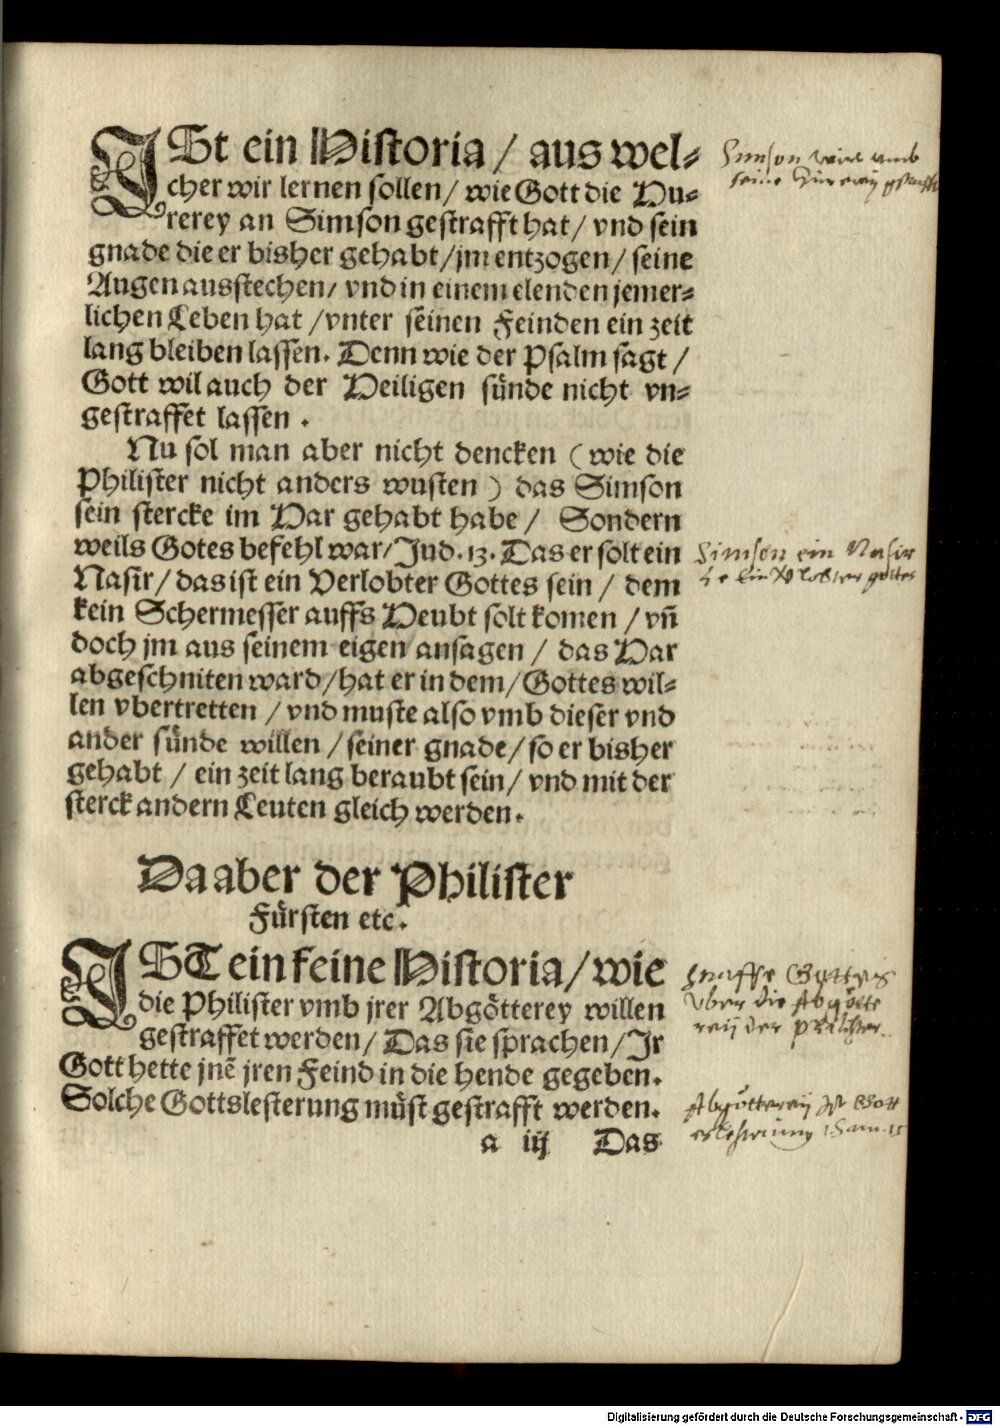 ISt ein Historia / aus wel=
cher wir lernen sollen / wie Gott die Hu=
rerey an Simson gestrafft hat / vnd sein
gnade die er bisher gehabt / jm entzogen / seine
Augen ausstechen / vnd in einem elenden jemer=
lichen Leben hat / vnter seinen Feinden ein zeit
lang bleiben lassen. Denn wie der Psalm sagt /
Gott wil auch der Heiligen sünde nicht vn=
gestraffet lassen .
Nu sol man aber nicht dencken ( wie die
Philister nicht anders wusten ) das Simson
sein stercke im Har gehabt habe / Sondern
weils Gotes befehl war / Jud. 13. Das er solt ein
Nasir / das ist ein Verlobter Gottes sein / dem
kein Schermesser auffs Heubt solt komen / vn̄
doch jm aus seinem eigen ansagen / das Har
abgeschniten ward / hat er in dem / Gottes wil=
len vbertretten / vnd muste also vmb dieser vnd
ander sünde willen / seiner gnade / so er bisher
gehabt / ein zeit lang beraubt sein / vnd mit der
sterck andern Leuten gleich werden.
Simson wird umb
seine Hurereij
Simson ein Nasir
ein Verlobter gottes
Da aber der Philister
Fürsten etc.
IST ein feine Historia / wie
die Philister vmb jrer Abgötterey willen
gestraffet werden / Das sie sprachen / Ir
Gott hette jnē jren Feind in die hende gegeben.
Solche Gottslesterung müst gestrafft werden.
a iij Das
Straffe Gottes
vber die Abgötte
reij der Philister.
Abgöttereij ist Gott
1 Sam. 15
Digitalisierung gefördert durch die Deutsche Forschungsgemeinschaft - DFG